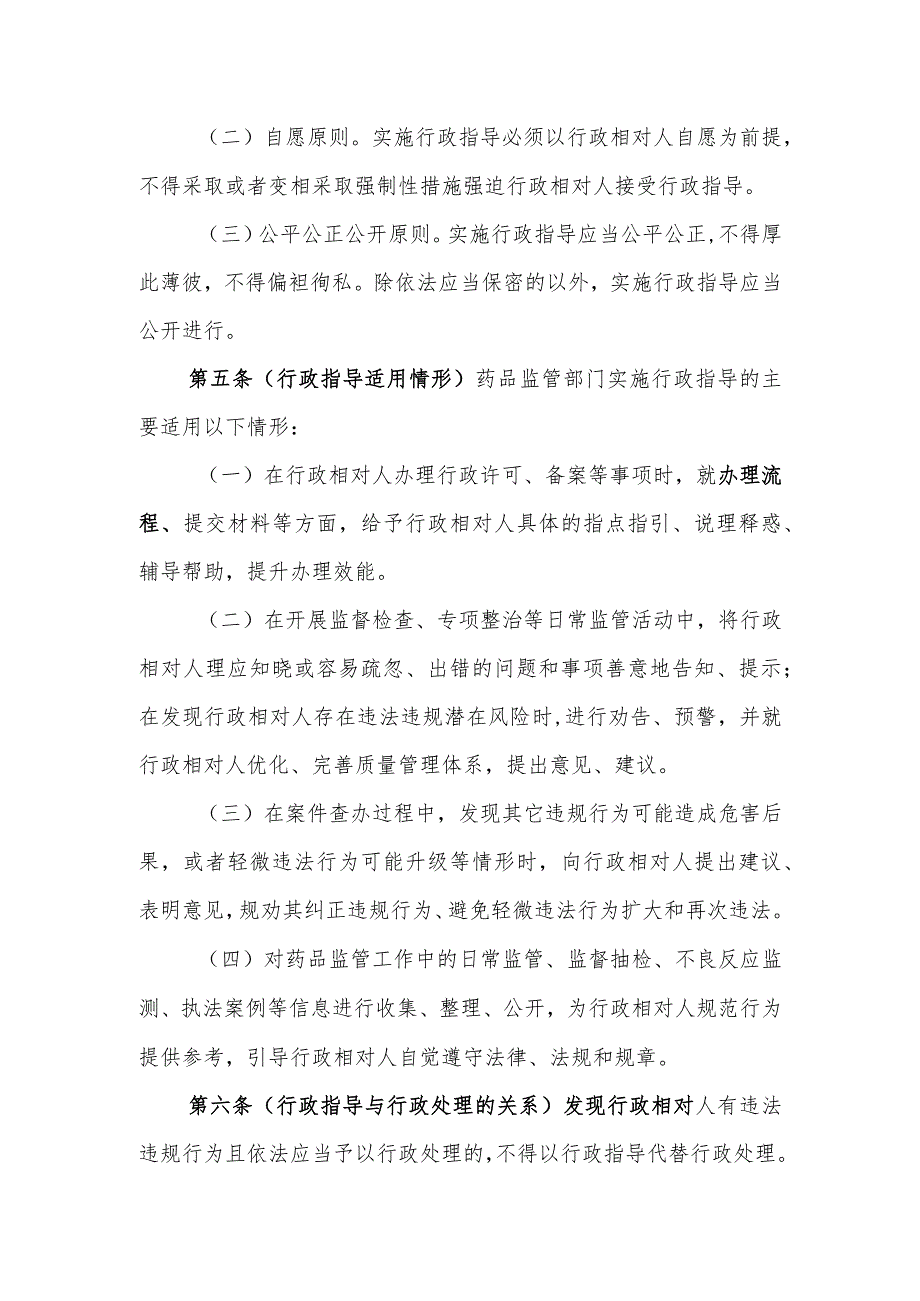 （二）自愿原则。实施行政指导必须以行政相对人自愿为前提，
不得采取或者变相采取强制性措施强迫行政相对人接受行政指导。
（三）公平公正公开原则。实施行政指导应当公平公正,不得厚
此薄彼，不得偏袒徇私。除依法应当保密的以外，实施行政指导应当
公开进行。
第五条（行政指导适用情形）药品监管部门实施行政指导的主
要适用以下情形：
（一）在行政相对人办理行政许可、备案等事项时，就办理流
程、提交材料等方面，给予行政相对人具体的指点指引、说理释惑、
辅导帮助，提升办理效能。
（二）在开展监督检查、专项整治等日常监管活动中，将行政
相对人理应知晓或容易疏忽、出错的问题和事项善意地告知、提示；
在发现行政相对人存在违法违规潜在风险时,进行劝告、预警，并就
行政相对人优化、完善质量管理体系，提出意见、建议。
（三）在案件查办过程中，发现其它违规行为可能造成危害后
果，或者轻微违法行为可能升级等情形时，向行政相对人提出建议、
表明意见，规劝其纠正违规行为、避免轻微违法行为扩大和再次违法。
（四）对药品监管工作中的日常监管、监督抽检、不良反应监
测、执法案例等信息进行收集、整理、公开，为行政相对人规范行为
提供参考，引导行政相对人自觉遵守法律、法规和规章。
第六条（行政指导与行政处理的关系）发现行政相对人有违法
违规行为且依法应当予以行政处理的,不得以行政指导代替行政处理。